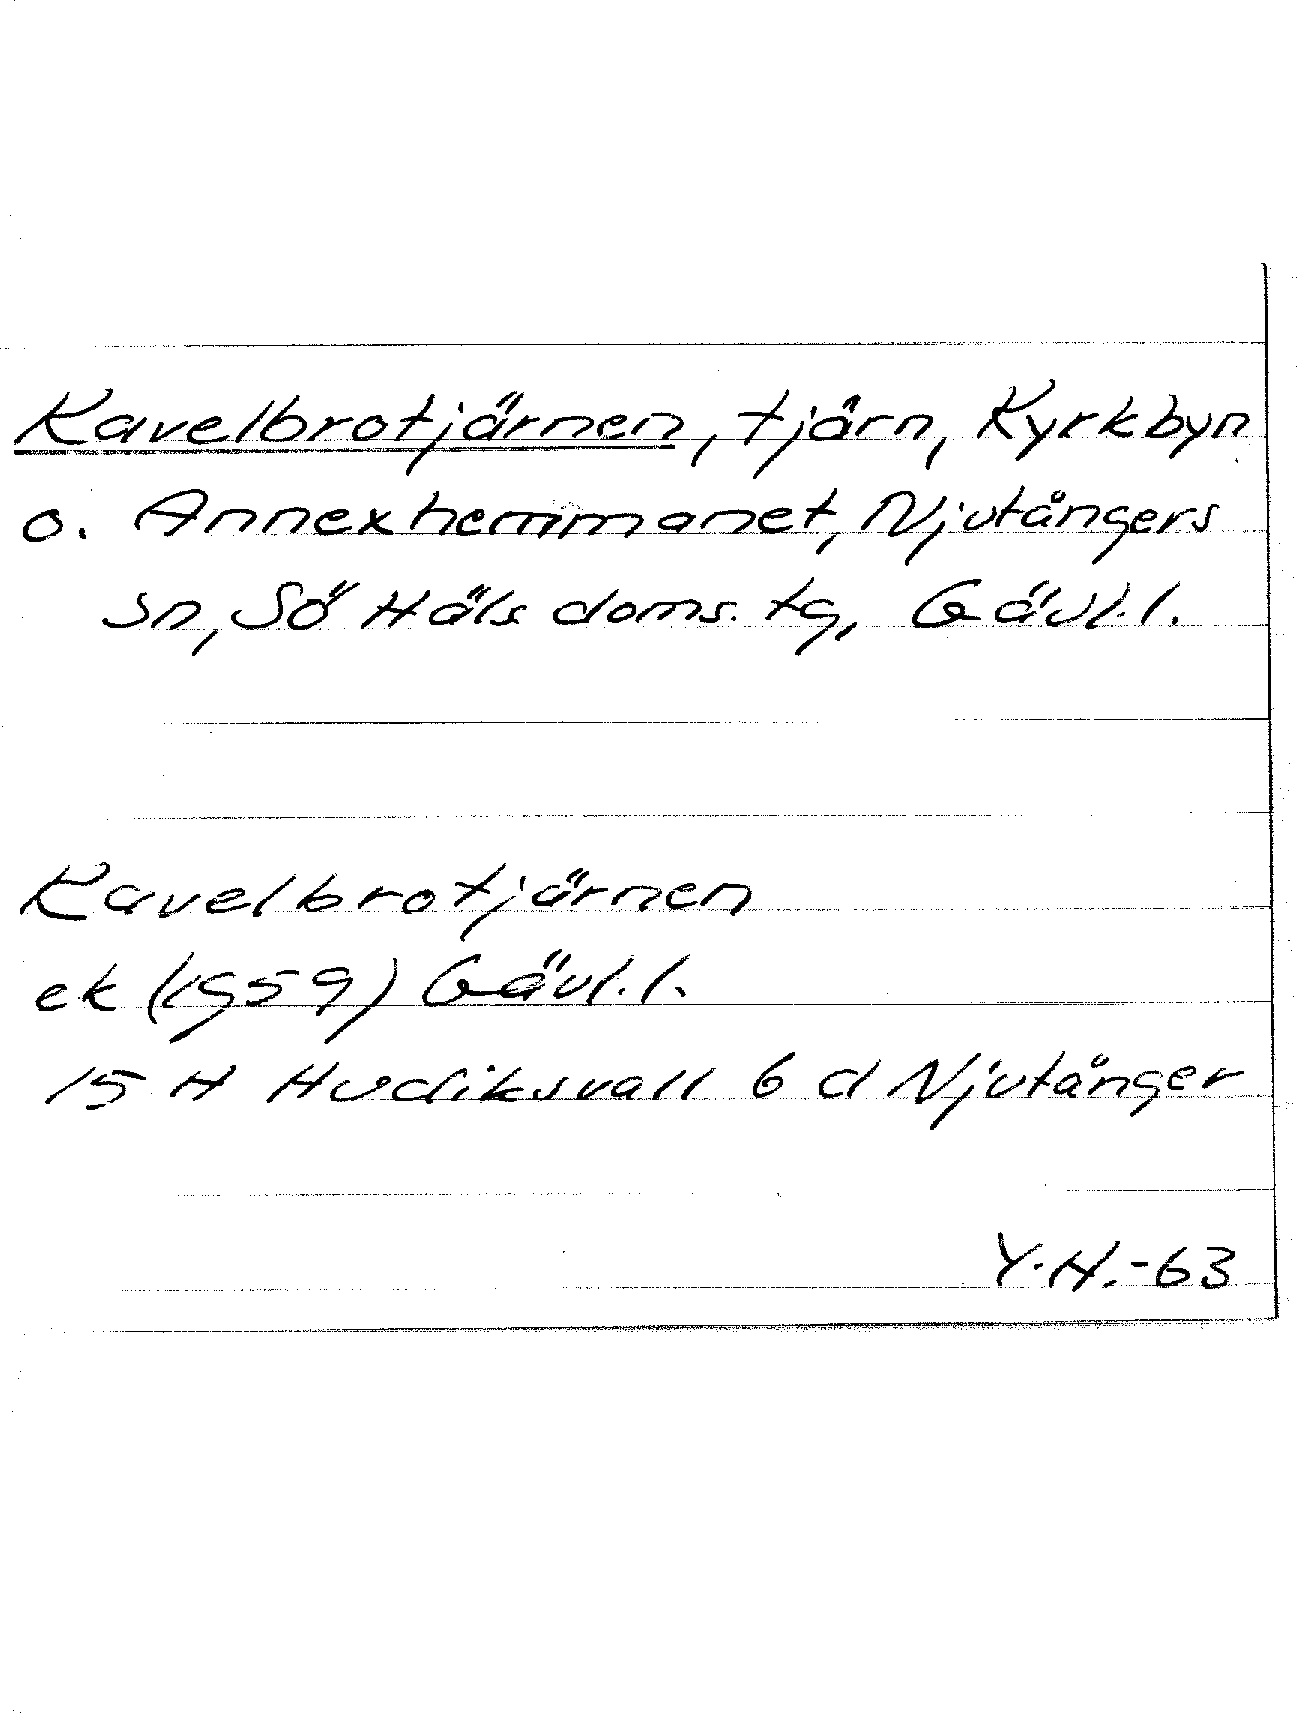 Kavelbrotjärnen, tjärn, Kyrkbyn
o. Annexhemmanet, Njutångers
sn, Sö Häls doms. tg, Gävl.l.
Kavelbrotjärnen
ek (1959) Gävl.l.
15 H Hudiksvall 6 d Njutånger
Y.H.-63